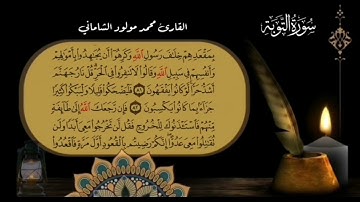 سورة التوبة
القارئ محمد مولود الشاماني
بِمَقْعَدِهِمْ خِلَٰفَ رَسُولِ ٱللَّهِ وَكَرِهُوٓا۟ أَن يُجَٰهِدُوا۟ بِأَمْوَٰلِهِمْ
وَأَنفُسِهِمْ فِى سَبِيلِ ٱللَّهِ وَقَالُوا۟ لَا تَنفِرُوا۟ فِى ٱلْحَرِّ قُلْ نَارُ جَهَنَّمَ
أَشَدُّ حَرًّا لَّوْ كَانُوا۟ يَفْقَهُونَ ٨١ فَلْيَضْحَكُوا۟ قَلِيلًا وَلْيَبْكُوا۟ كَثِيرًا
جَزَآءًۢ بِمَا كَانُوا۟ يَكْسِبُونَ ٨٢ فَإِن رَّجَعَكَ ٱللَّهُ إِلَىٰ طَآئِفَةٍ
مِّنْهُمْ فَٱسْتَـْٔذَنُوكَ لِلْخُرُوجِ فَقُل لَّن تَخْرُجُوا۟ مَعِىَ أَبَدًا وَلَن
تُقَٰتِلُوا۟ مَعِىَ عَدُوًّا إِنَّكُمْ رَضِيتُم بِٱلْقُعُودِ أَوَّلَ مَرَّةٍ فَٱقْعُدُوا۟